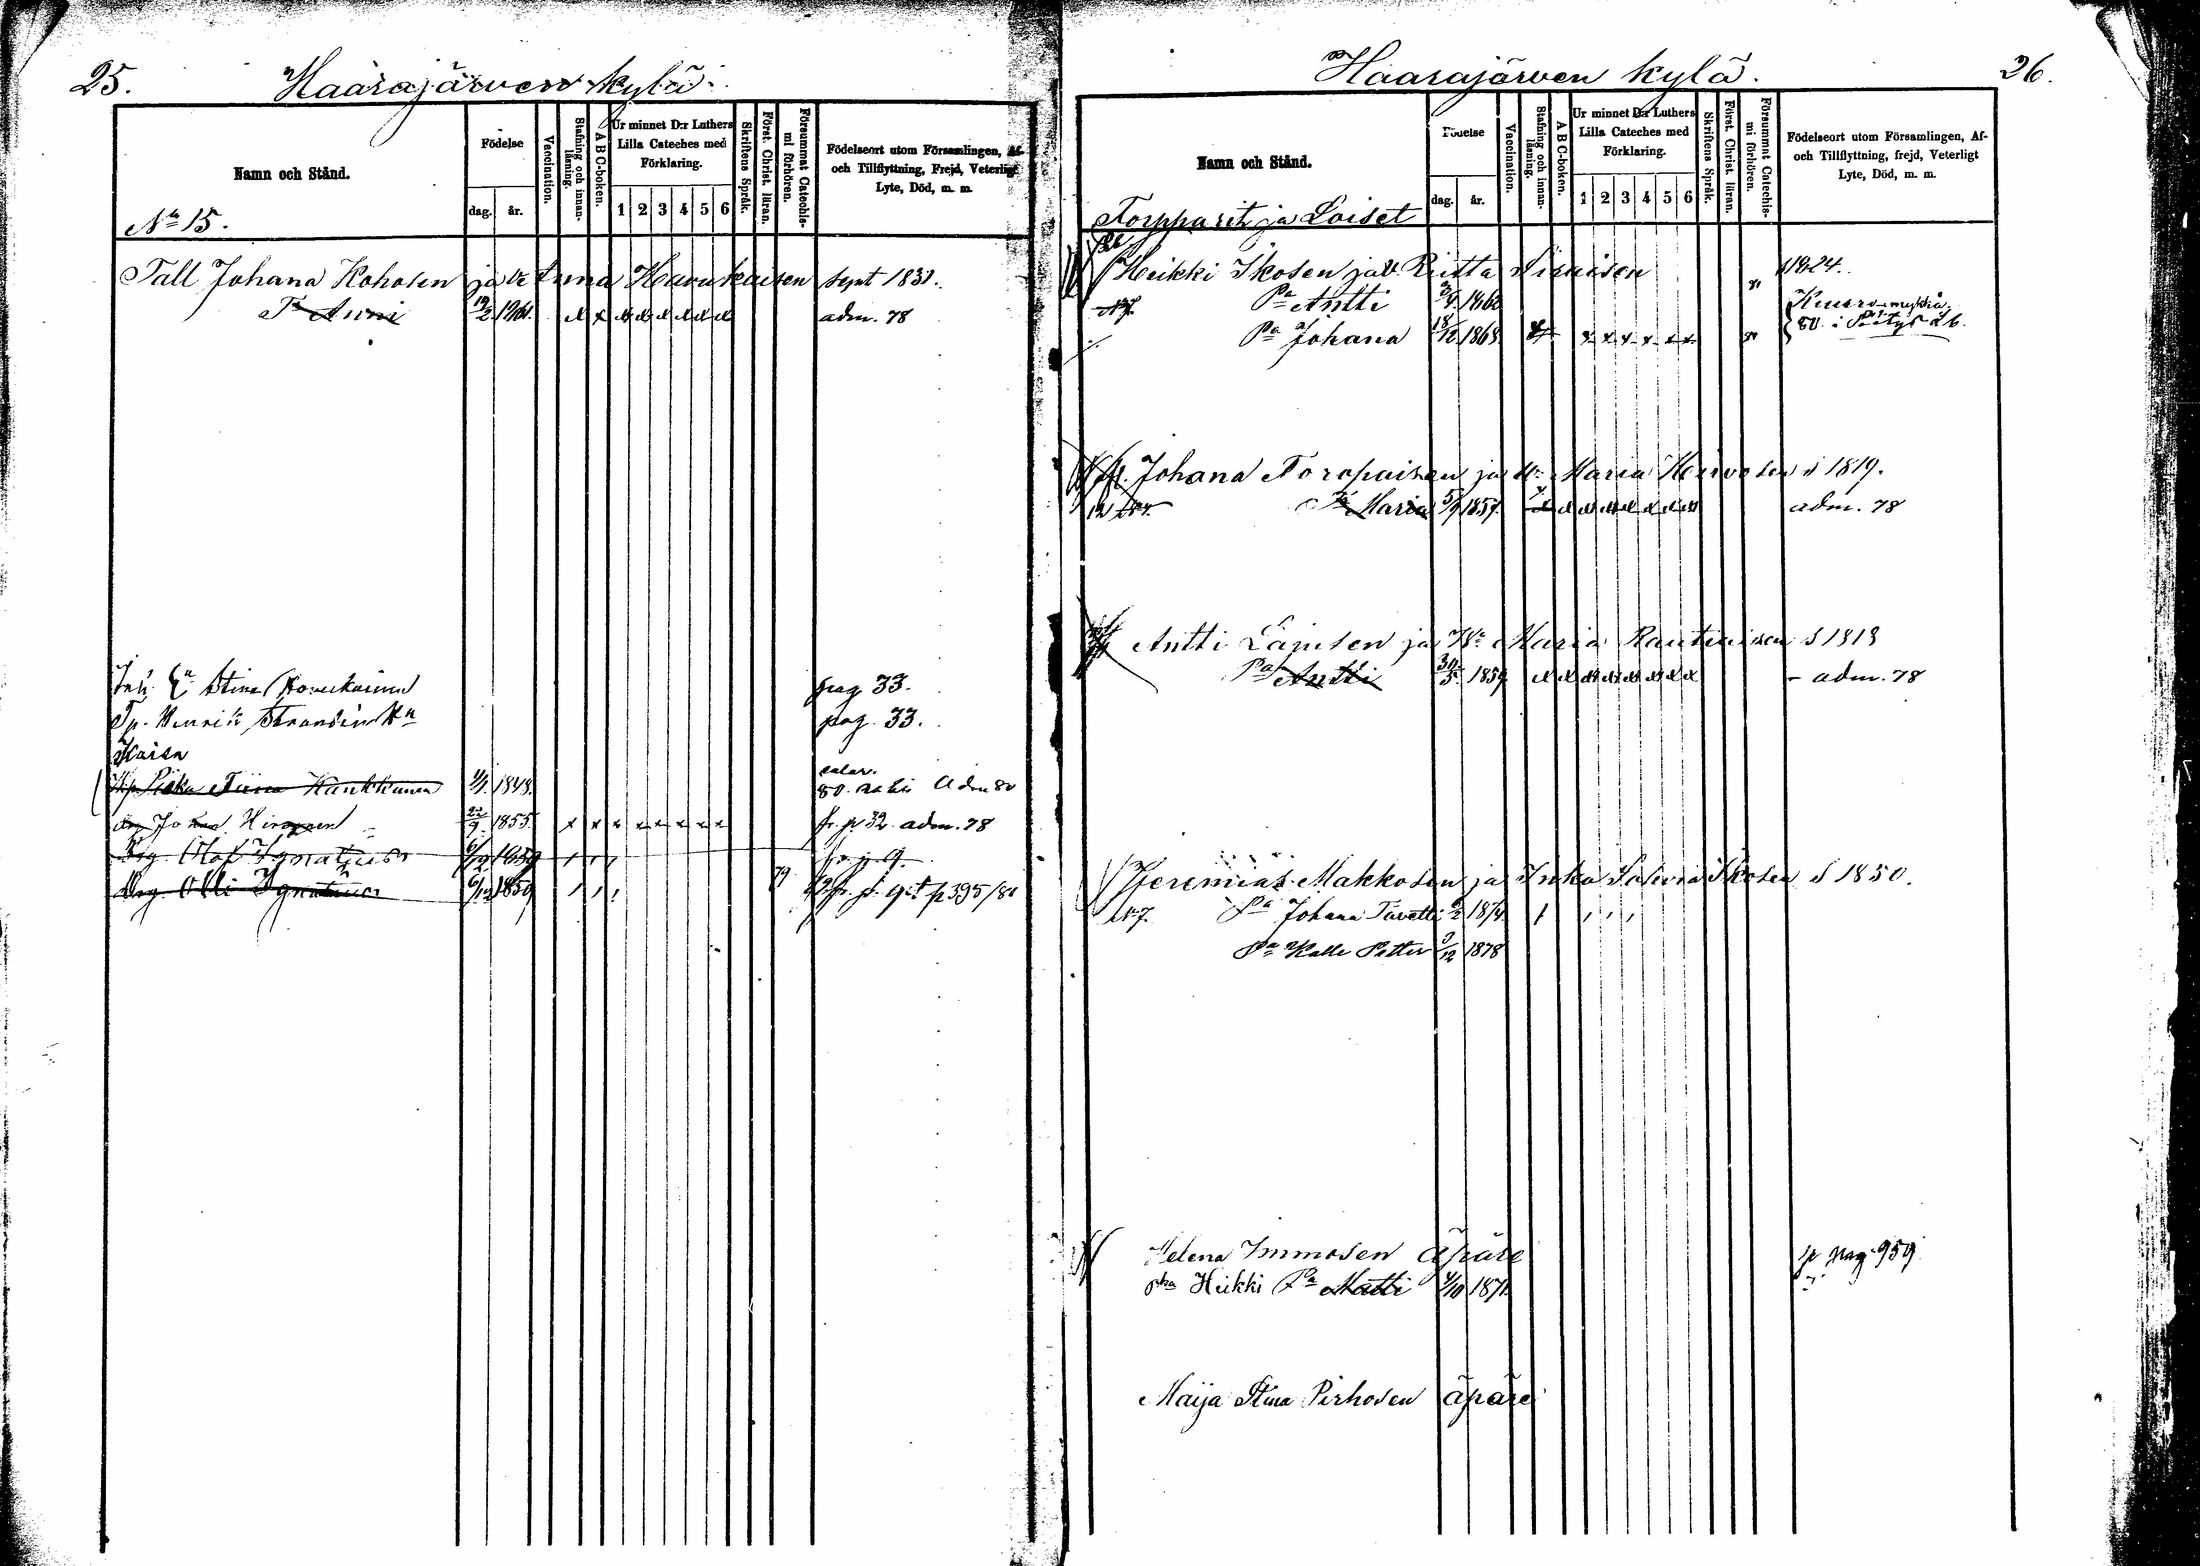 25.
Haarajärven kylä.
Namn och Stånd.
Födelse
dag.
år.
Vaccination.
Stafning och innan-läsning.
A B C-boken.
Ur minnet D:r Luthers
Lilla Cateches med
Förklaring.
1 2 3 4 5 6
Skriftens Språk.
Först. Christ. läran.
Försummat Catechis-
mi förhören.
Födelseort utom Församlingen, Af-
och Tillflyttning, Frejd, Veterligt
Lyte, Död, m. m.
No 15.
Tall Johana Kohosen ja Vo Anna Havukaisen sept 1831.
Tr Anni 19/2 1861. x x x x x x x x adm. 78
Stina Havukainen pag 33.
Henrik pag. 33.
Kaisa
Kaukkunen 1/1. 1848. 80. Adm 80
Johan Hirvonen 22/9. 1855. x x x x x x x x fr. p 32. adm. 78
Drg. Olof Ignatius 6/12 1859 fr. p 9.
Drg. Olli Ignatius 6/12 1859 79 fr. p. 9 p 395/80
Haarajärven kylä.
26.
Namn och Stånd.
Födelse
dag.
år.
Vaccination.
Stafning och innan-läsning.
A B C-boken.
Ur minnet D:r Luthers
Lilla Cateches med
Förklaring.
1 2 3 4 5 6
Skriftens Språk.
Först. Christ. läran.
Försummat Catechis-
mi förhören.
Födelseort utom Församlingen, Af-
och Tillflyttning, frejd, Veterligt
Lyte, Död, m. m.
Torpparit ja Loiset
Heikki Ikosen ja V. Riitta 1824.
N7. Pa Antti 3/4 1860 Kuuro-mykkä
Pa Johana 18/12 1863 x x x x x x 80 i
Johana Toropaisen ja Vo Maria Hirvosen s 1819.
Tr Maria 5/9 1857 x x x x x x x x adm. 78
Antti Lämsen ja Vo Maria Rautiaisen s 1818
Pa Antti 30/5. 1859 x x x x x x x x - adm. 78
Jeremias Makkosen ja Inka Ikosen s 1850.
N7. Pa Johana Taavetti 1874
Pa Kalle Petter 3/12 1878
Helena Immosen äpäre pag. 959
Heikki Pa Matti 4/10 1871
Maija Stina Pirhosen äpäre